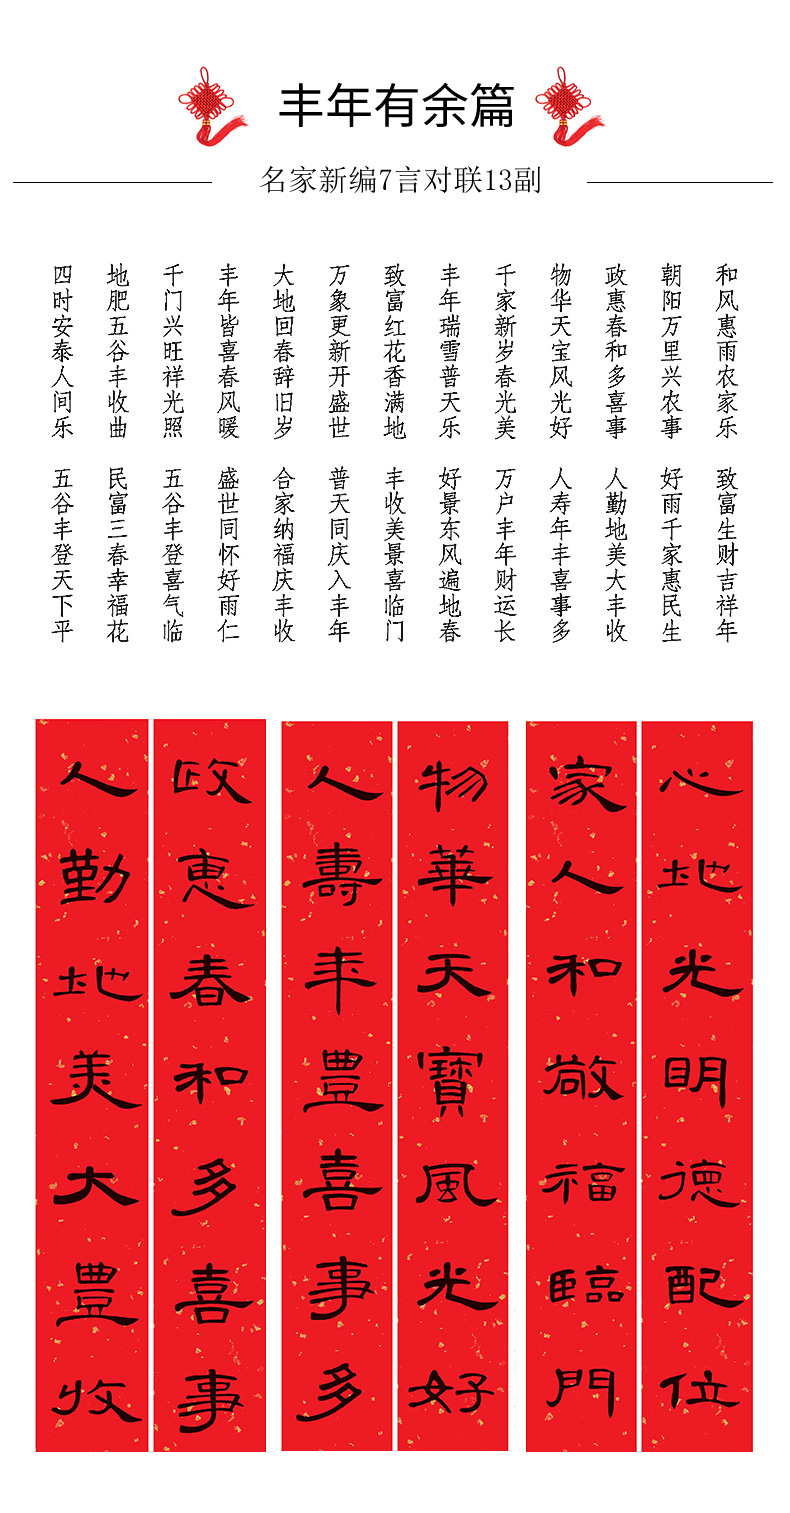 丰年有余篇
名家新编7言对联13副
和风惠雨农家乐
致富生财吉祥年
朝阳万里兴农事
好雨千家惠民生
政惠春和多喜事
人勤地美大丰收
物华天宝风光好
人寿年丰喜事多
千家新岁春光美
万户丰年财运长
丰年瑞雪普天乐
好景东风遍地春
致富红花香满地
丰收美景喜临门
万象更新开盛世
普天同庆入丰年
大地回春辞旧岁
合家纳福庆丰收
丰年皆喜春风暖
盛世同怀好雨仁
千门兴旺祥光照
五谷丰登喜气临
地肥五谷丰收曲
民富三春幸福花
四时安泰人间乐
五谷丰登天下平
心地光明德配位
家人和敬福臨門
物華天寶風光好
人壽年豐喜事多
政惠春和多喜事
人勤地美大豐收